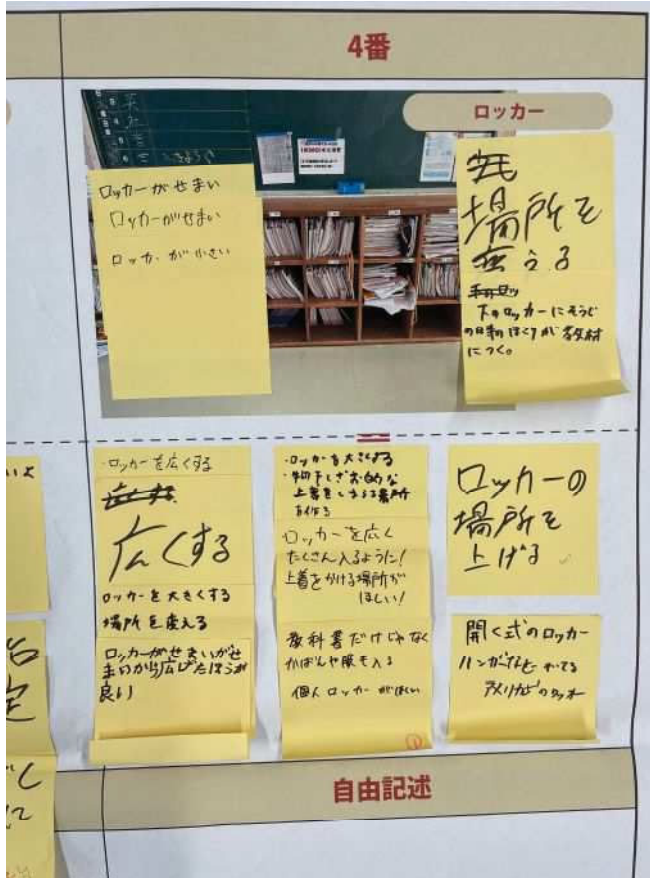 4番
ロッカー
ロッカーがせまい
ロッカーがせまい
ロッカーが小さい
場所を
変える
下のロッカーにそうじ
の時のほこりが教材
につく。
・ロッカーを広くする
広くする
広くする
ロッカーを大きくする
場所を変える
ロッカーがせまいがせ
まいから広げたほうが
良い
・ロッカーを大きくする
・物干しざお的な
上着をしまえる場所
を作る
ロッカーを広く
たくさん入るように!
上着をかける場所が
ほしい!
教科書だけじゃなく
かばんや服も入る
個人ロッカーがほしい
ロッカーの
場所を
上げる
開く式のロッカー
自由記述